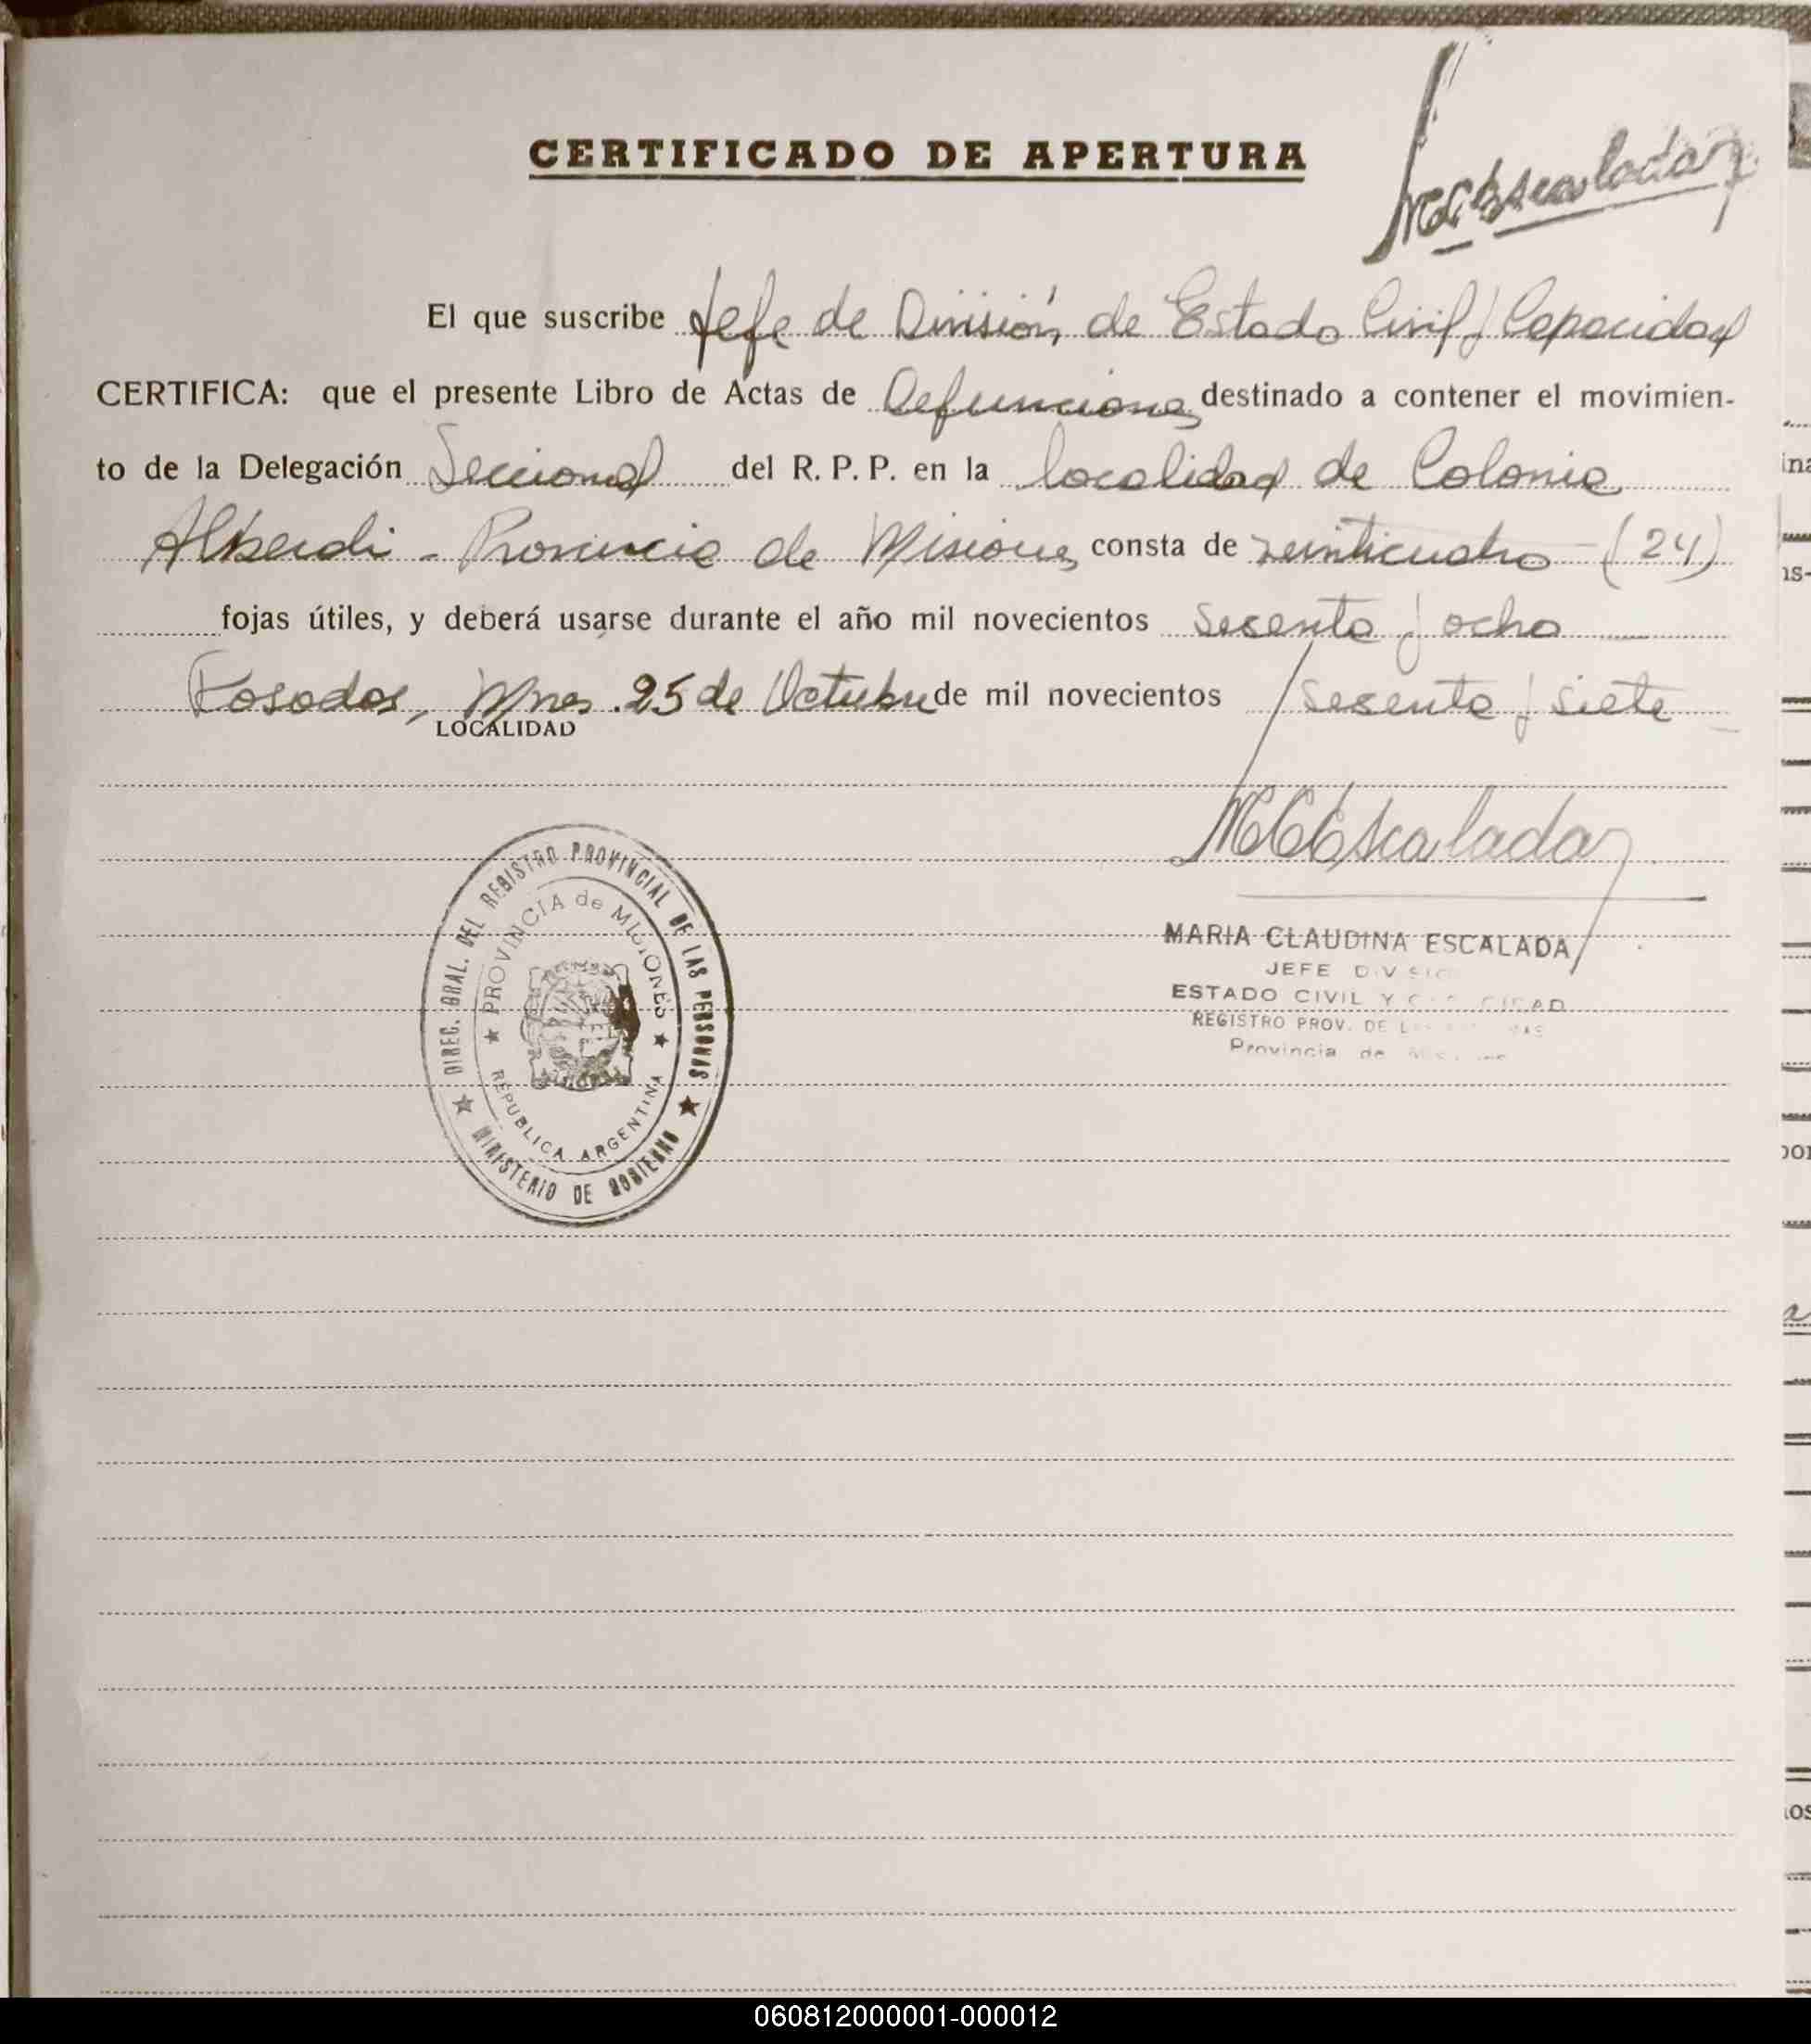 CERTIFICADO DE APERTURA
MCEscalada
El que suscribe Jefe de División de Estado Civil y Capacidad
CERTIFICA: que el presente Libro de Actas de Defunciones destinado a contener el movimien-
to de la Delegación Seccional del R. P. P. en la localidad de Colonia
Alberdi - Provincia de Misiones consta de veinticuatro - (24)
fojas útiles, y deberá usarse durante el año mil novecientos sesenta y ocho
Posadas, Mnes. 25 de Octubre de mil novecientos sesenta y siete
LOCALIDAD
MCEscalada
MARIA CLAUDINA ESCALADA
JEFE
ESTADO CIVIL Y
REGISTRO PROV. DE
Provincia de
DIREC. GRAL. DEL REGISTRO PROVINCIAL DE LAS PERSONAS
MINISTERIO DE GOBIERNO
PROVINCIA de MISIONES
REPUBLICA ARGENTINA
060812000001-000012